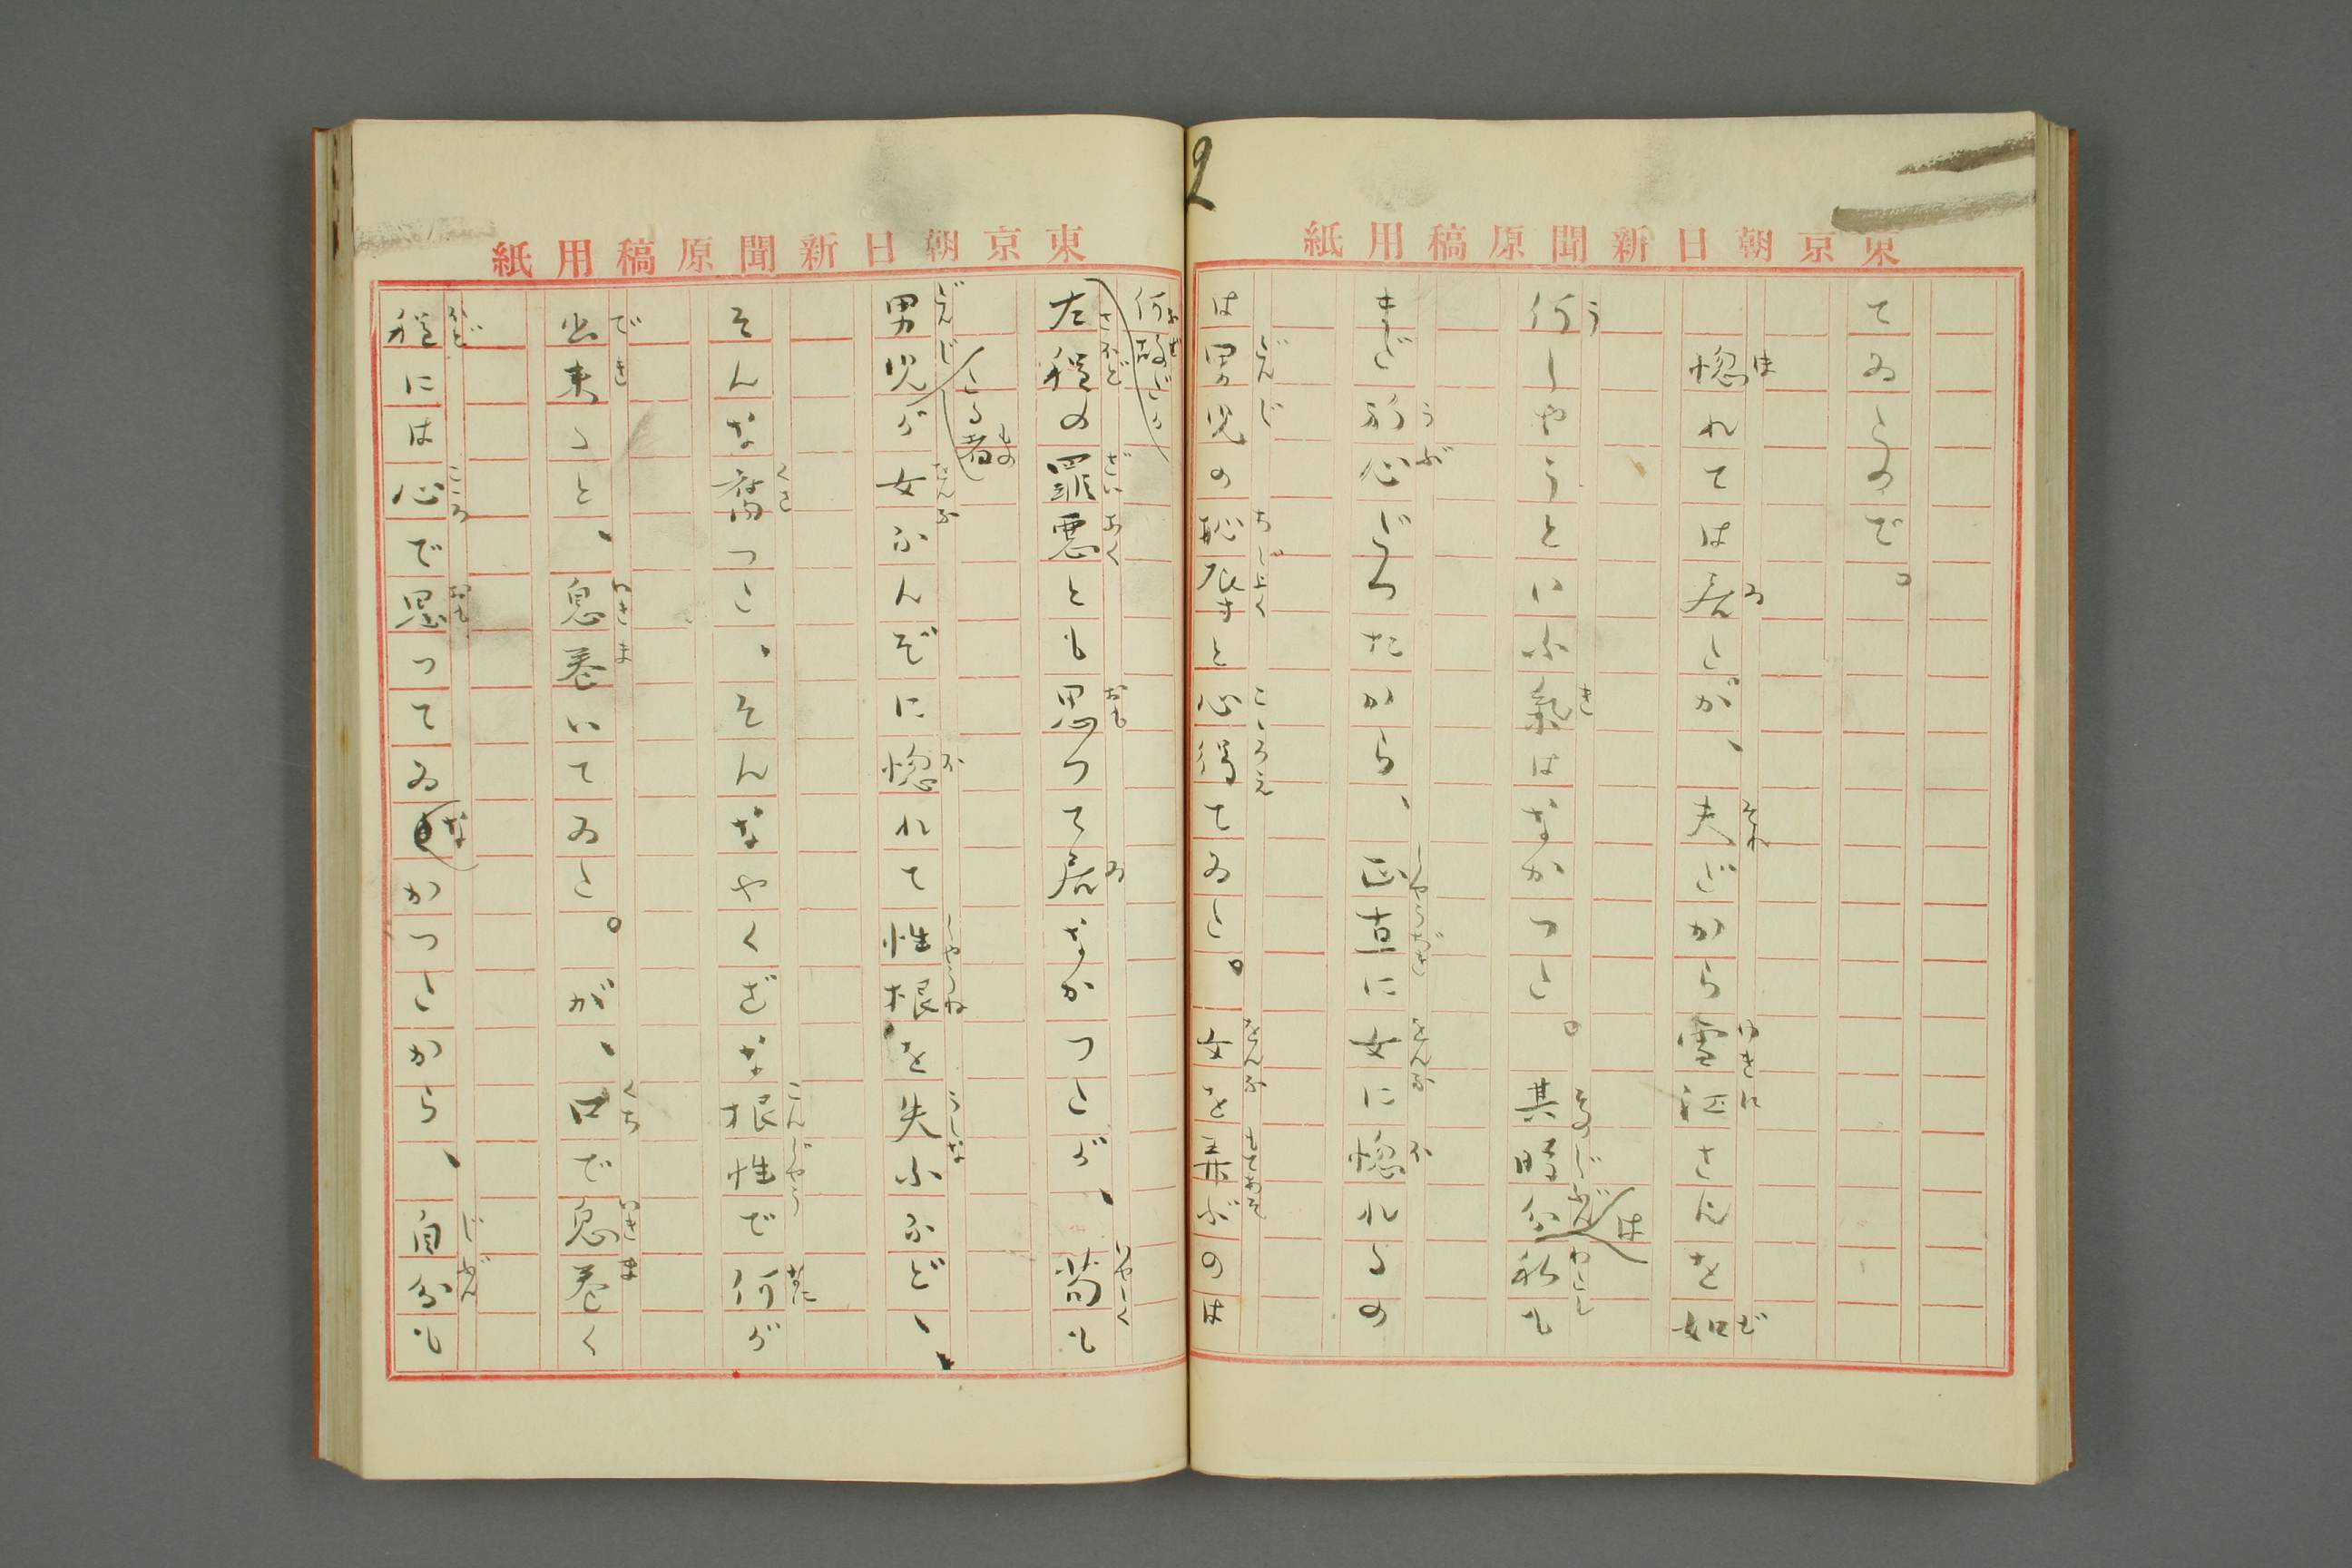 東京朝日新聞原稿用紙
てゐたので。
惚れては居たが、夫だから雪江さんを如
何しやうといふ気はなかつた。其時分は私も
まだ初心だつたから、正直に女に惚れるの
は男児の恥辱と心得てゐた。女を弄ぶのは
2
東京朝日新聞原稿用紙
何故だか
左程の罪悪とも思つて居なかつたが、苟も
男児たる者が女なんぞに惚れて性根を失ふなどゝ、
そんな腐つた、そんなやくざな根性で何が
出来ると、息巻いてゐた。が、口で息巻く
程には心で思つてゐなかつたから、自分も